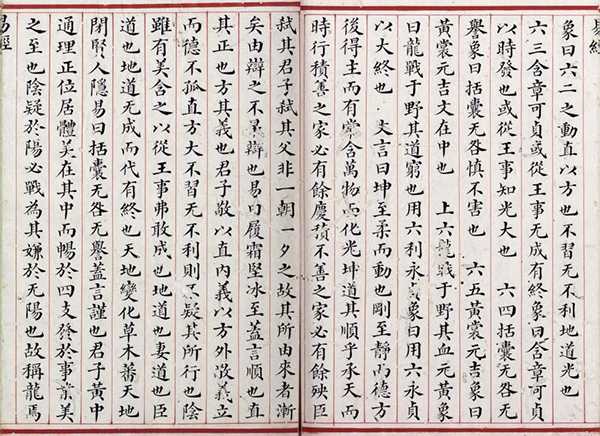 易經
象曰六二之動直以方也不習无不利地道光也
六三含章可貞或從王事无成有終象曰含章可貞
以時發也或從王事知光大也 六四括囊无咎无
譽象曰括囊无咎慎不害也 六五黃裳元吉象曰
黃裳元吉文在中也 上六龍戰于野其血元黃象
曰龍戰于野其道窮也用六利永貞象曰用六永貞
以大終也 文言曰坤至柔而動也剛至靜而德方
後得主而有常含萬物而化光坤道其順乎承天而
時行積善之家必有餘慶積不善之家必有餘殃臣
弒其君子弒其父非一朝一夕之故其所由來者漸
矣由辯之不早辯也易曰履霜堅冰至蓋言順也直
其正也方其義也君子敬以直內義以方外敬義立
而德不孤直方大不習无不利則不疑其所行也陰
雖有美含之以從王事弗敢成也地道也妻道也臣
道也地道无成而代有終也天地變化草木蕃天地
閉賢人隱易曰括囊无咎无譽蓋言謹也君子黃中
通理正位居體美在其中而暢於四支發於事業美
之至也陰疑於陽必戰為其嫌於无陽也故稱龍焉
易經